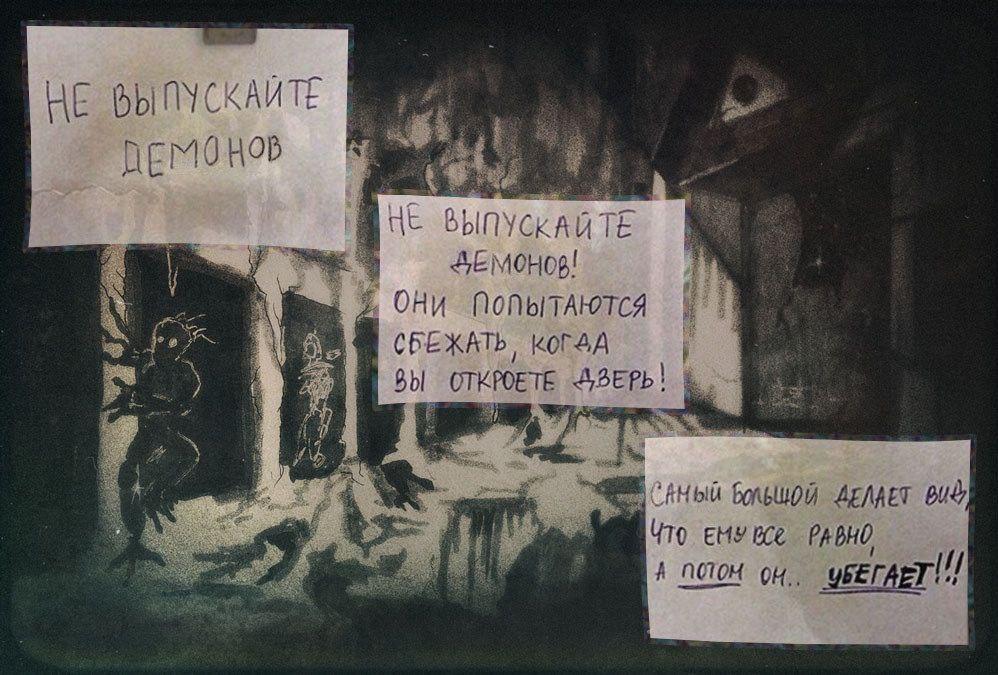 НЕ ВЫПУСКАЙТЕ
ДЕМОНОВ
НЕ ВЫПУСКАЙТЕ
ДЕМОНОВ!
ОНИ ПОПЫТАЮТСЯ
СБЕЖАТЬ, КОГДА
ВЫ ОТКРОЕТЕ ДВЕРЬ!
САМЫЙ БОЛЬШОЙ ДЕЛАЕТ ВИД,
ЧТО ЕМУ ВСЕ РАВНО,
А ПОТОМ ОН.. УБЕГАЕТ!!!